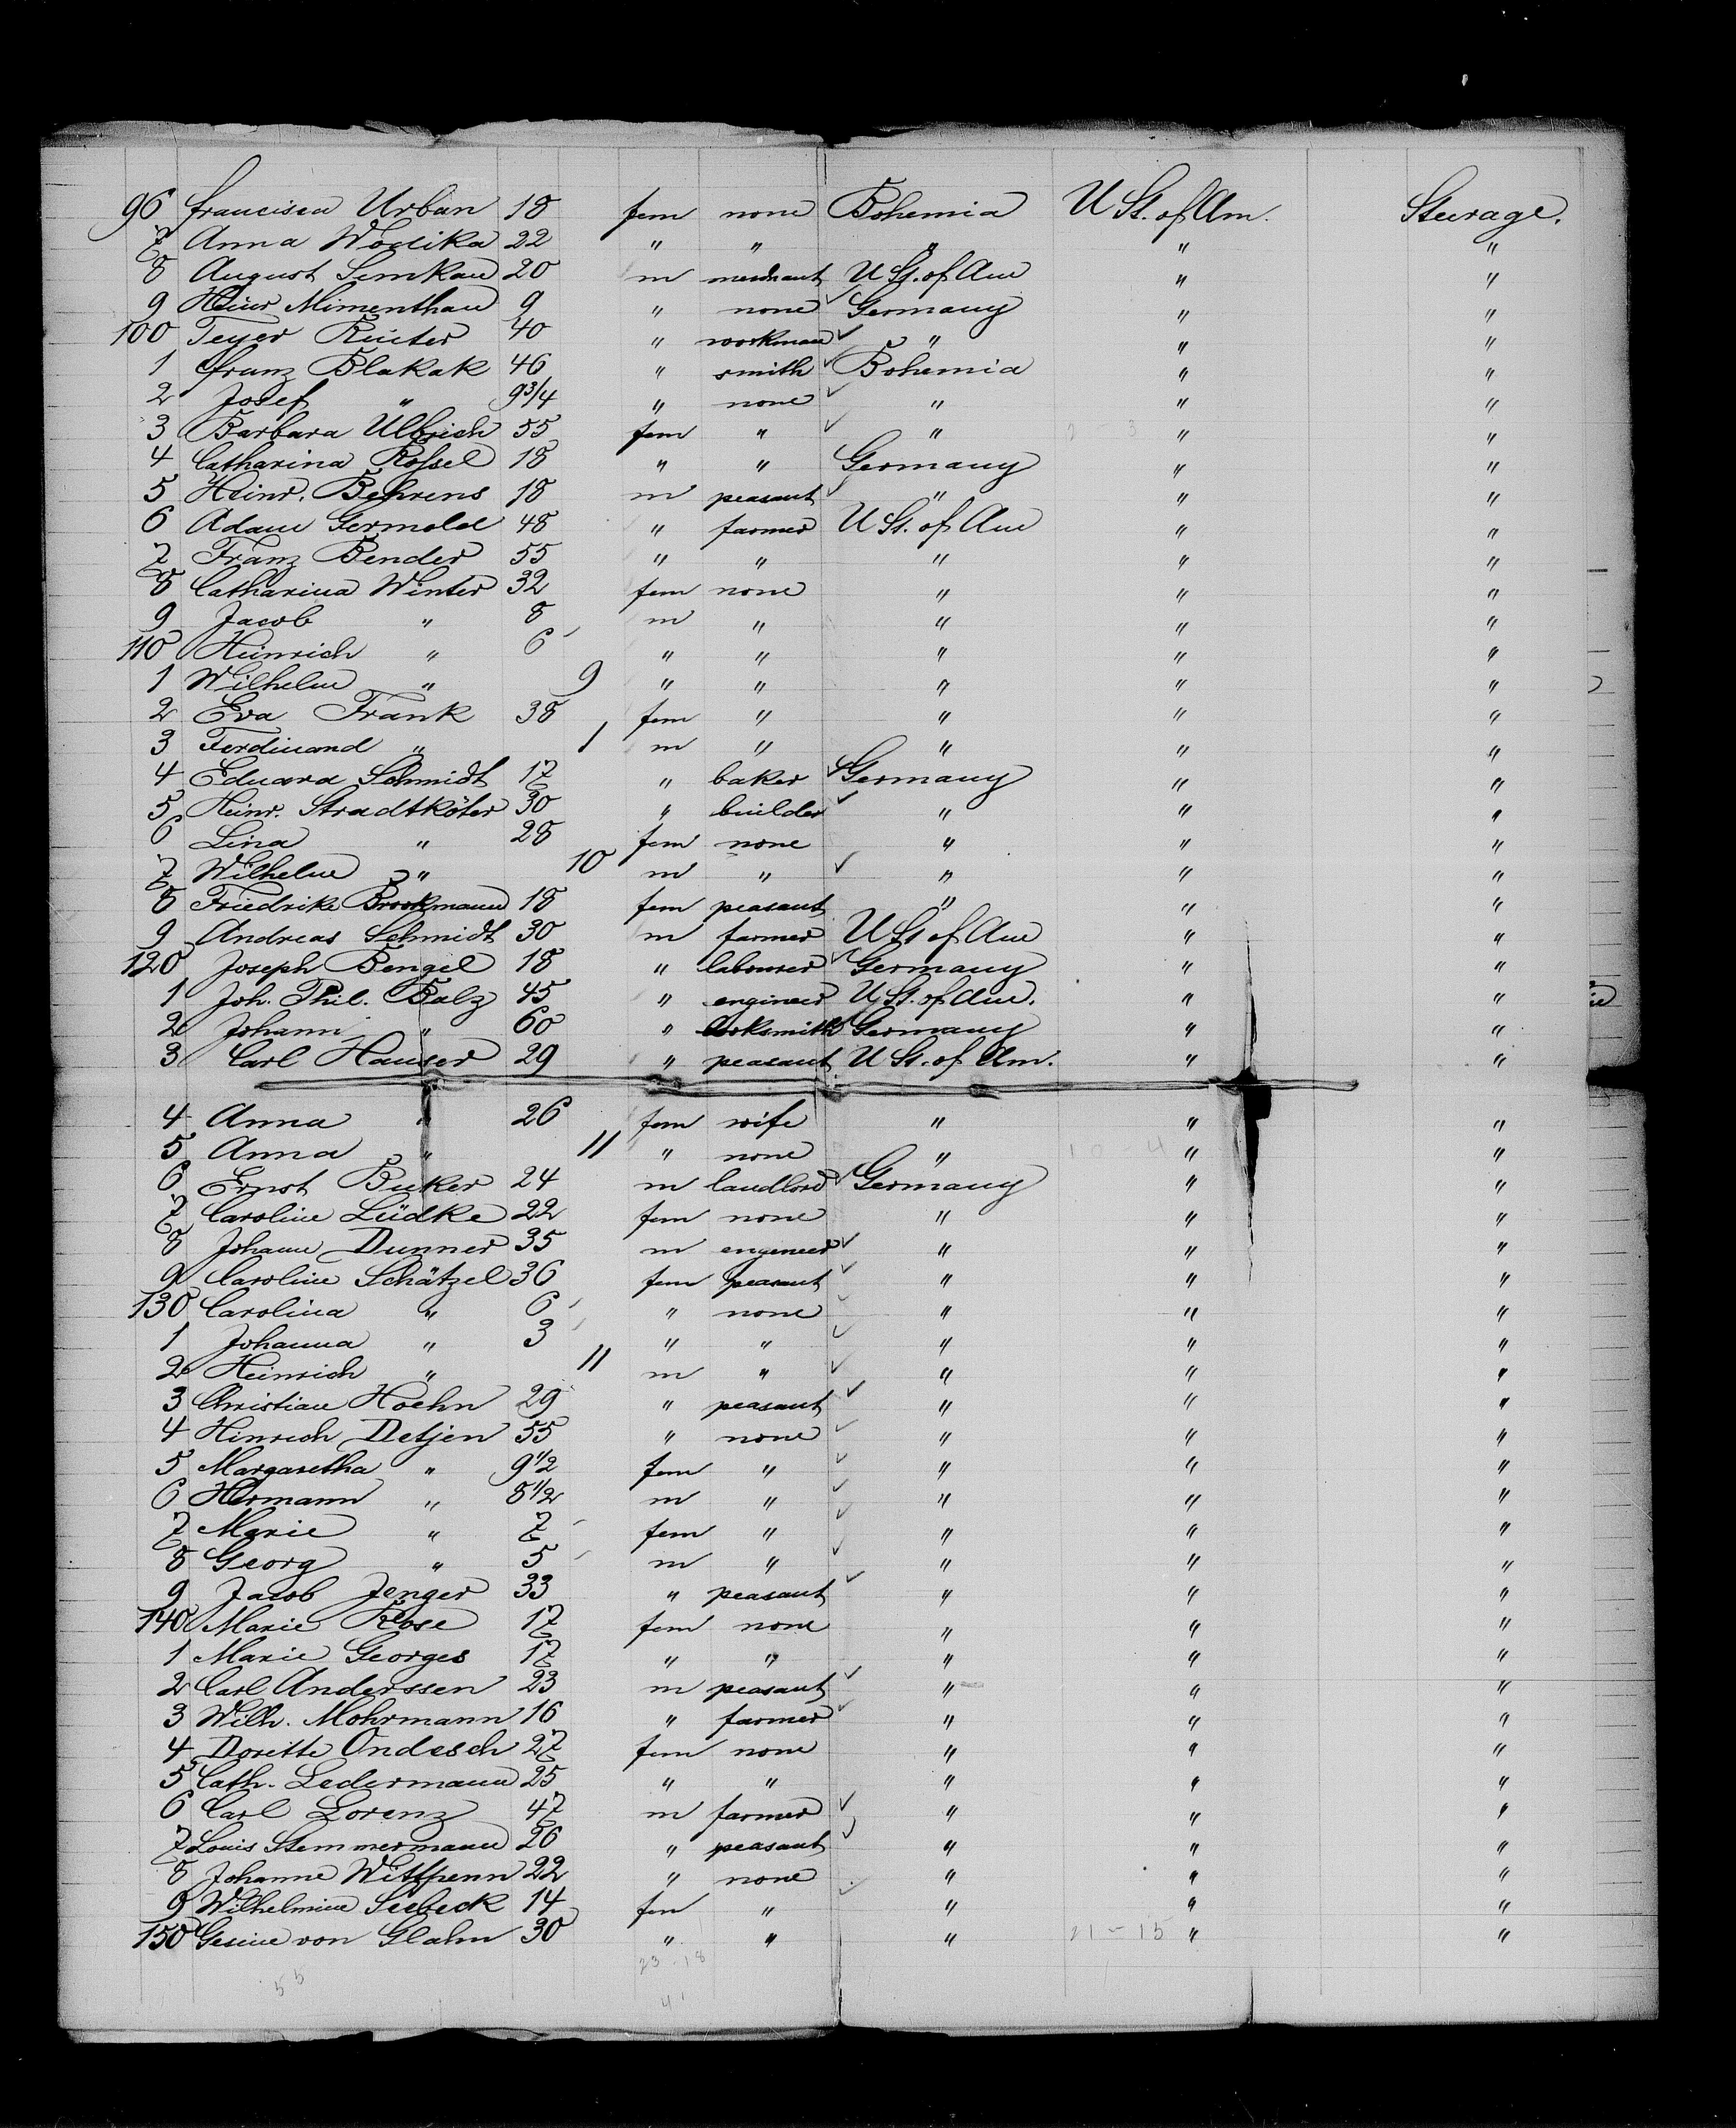 96 Francisca Urban 18 fem none Bohemia U St. of Am. Steerage.
7 Anna Wodika 22 " " " " "
8 August Semkau 20 m merchant U St. of Am " "
9 Heinr Mimenthau 9 " none Germany " "
100 Teyer Reuter 40 " workman " " "
1 Franz Blakak 46 " smith Bohemia " "
2 Josef " 9 3/4 " none " " "
3 Barbara Ulbrich 55 fem " " " "
4 Catharina Rossel 18 " " Germany " "
5 Heinr. Behrens 18 m peasant " " "
6 Adam Germold 48 " farmer U St. of Am " "
7 Franz Bender 55 " " " " "
8 Catharina Winter 32 fem none " " "
9 Jacob " 8 m " " " "
110 Heinrich " 6 " " " " "
1 Wilhelm " 9 " " " " "
2 Eva Frank 38 fem " " " "
3 Ferdinand " 1 m " " " "
4 Eduard Schmidt 17 " baker Germany " "
5 Heinr. Stradtköter 30 " builder " " "
6 Lina " 28 fem none " " "
7 Wilhelm " 10 m " " " "
8 Friedrike Brockmann 18 fem peasant " " "
9 Andreas Schmidt 30 m farmer U St of Am " "
120 Joseph Bengel 18 " labourer Germany " "
1 Joh. Phil. Balz 45 " engineer U St. of Am. " "
2 Johann " 60 " locksmith Germany " "
3 Carl Hauser 29 " peasant U St. of Am. " "
4 Anna " 26 fem wife " " "
5 Anna " 11 " none " 10 4 " "
6 Ernst Buker 24 m landlord Germany " "
7 Caroline Lüdke 22 fem none " " "
8 Johann Dunner 35 m engeneer " " "
9 Caroline Schätzel 36 fem peasant " " "
130 Carolina " 6 " none " " "
1 Johanna " 3 " " " " "
2 Heinrich " 11 m " " " "
3 Christian Hoehn 29 " peasant " " "
4 Hinrich Detjen 55 " none " " "
5 Margaretha " 9 1/2 fem " " " "
6 Hermann " 8 1/2 m " " " "
7 Marie " 7 fem " " " "
8 Georg " 5 m " " " "
9 Jacob Jenger 33 " peasant " " "
140 Marie Rose 17 fem none " " "
1 Marie Georges 17 " " " " "
2 Carl Anderssen 23 m peasant " " "
3 Wilh. Mohrmann 16 " farmer " " "
4 Dorette Ondesch 27 fem none " " "
5 Cath. Ledermann 25 " " " " "
6 Carl Lorenz 47 m farmer " " "
7 Louis Stemmermann 26 " peasant " " "
8 Johanne Wittpenn 22 " none " " "
9 Wilhelmine Seebeck 14 fem " " " "
150 Gesine von Glahn 30 " " " 21 - 15 " "
23 - 18
55
41